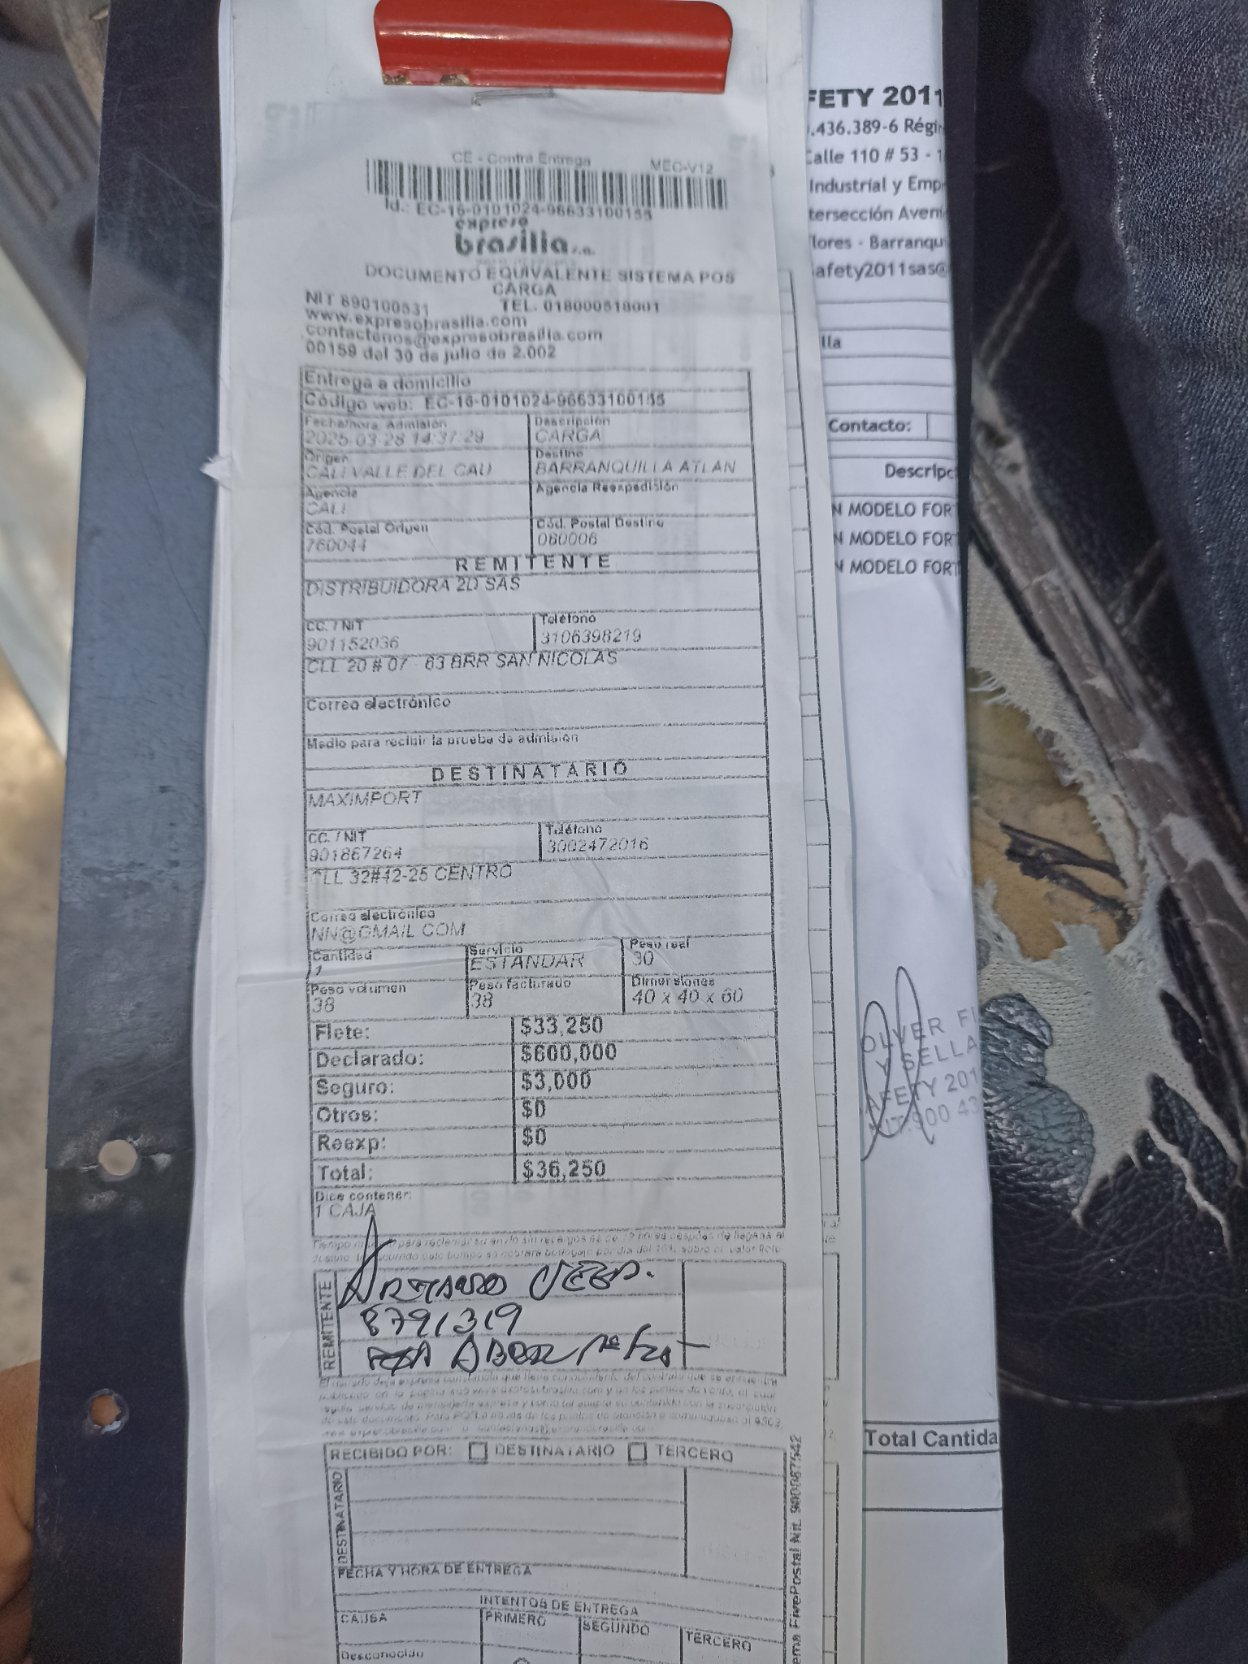 CE - Contra Entrega MEC-V12
Id.: EC-16-0101024-96633100155
expreso
brasilia s.a.
DOCUMENTO EQUIVALENTE SISTEMA POS
CARGA
NIT 890100531 TEL. 018000518001
www.expresobrasilia.com
contactenos@expresobrasilia.com
00159 del 30 de julio de 2.002
Entrega a domicilio
Código web: EC-16-0101024-96633100155
Fecha/hora Admisión Descripción
2025-03-28 14:37:29 CARGA
Origen Destino
CALI VALLE DEL CAU BARRANQUILLA ATLAN
Agencia Agencia Reexpedición
CALI
Cód. Postal Origen Cód. Postal Destino
760044 080006
REMITENTE
DISTRIBUIDORA 2D SAS
CC. / NIT Teléfono
901152036 3106398219
CLL 20 # 07 - 63 BRR SAN NICOLAS
Correo electrónico
Medio para recibir la prueba de admisión
DESTINATARIO
MAXIMPORT
CC. / NIT Teléfono
901867264 3002472016
CLL 32#42-25 CENTRO
Correo electrónico
NN@GMAIL COM
Cantidad Servicio Peso real
1 ESTANDAR 30
Peso volumen Peso facturado Dimensiones
38 38 40 x 40 x 60
Flete: $33,250
Declarado: $600,000
Seguro: $3,000
Otros: $0
Reexp: $0
Total: $36,250
Dice contener:
1 CAJA
REMITENTE
8791319
RECIBIDO POR: DESTINATARIO TERCERO
DESTINATARIO
FECHA Y HORA DE ENTREGA
INTENTOS DE ENTREGA
CAUSA PRIMERO SEGUNDO TERCERO
Desconocido
FETY 2011
.436.389-6 Régi
Calle 110 # 53 - 1
Industrial y Emp
tersección Aven
lores - Barranqu
afety2011sas@
lla
Contacto:
Descripc
N MODELO FOR
N MODELO FOR
N MODELO FOR
OLVER FI
Y SELLA
AFETY 201
NIT:900 43
Total Cantida